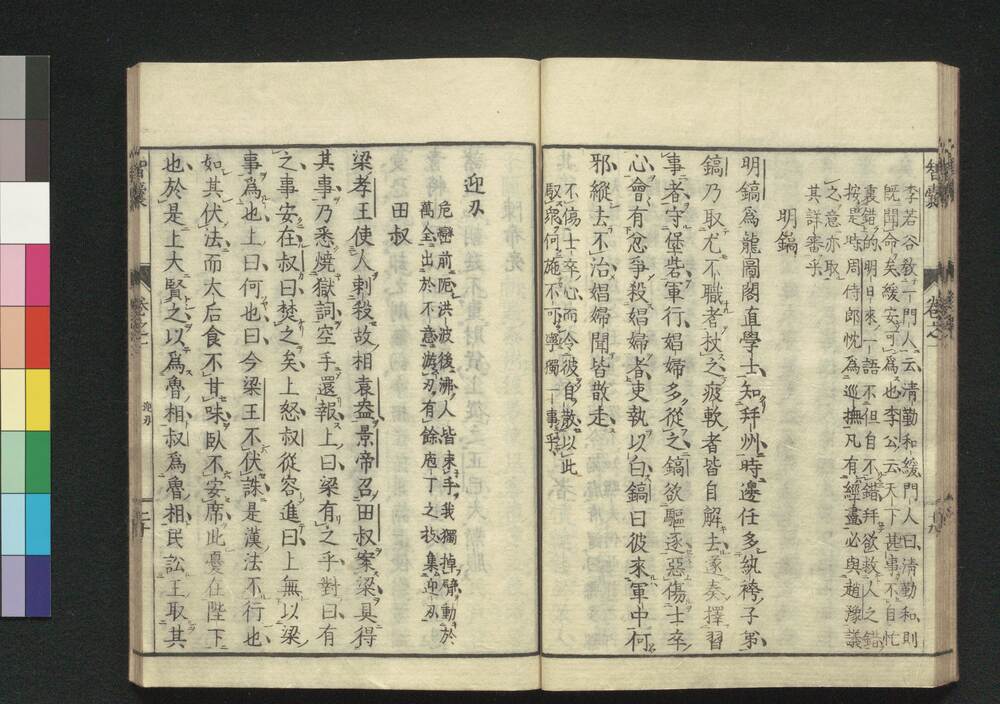 李若谷教一門人云清勤和緩門人曰清勤和則
既聞命矣緩安可爲也李公云天下甚事不自忙
裏錯的明日來一語不但自不錯并欲救人之錯
按是時周侍郎忱爲巡撫凡有經畫必與趙豫議
之意亦取
其詳審乎
明鎬
明鎬爲龍圖閣直學士知并州時邊任多紈袴子弟
鎬乃取尤不職者杖之疲軟者皆自解去遂奏擇習
事者守堡砦軍行娼婦多從之鎬欲驅逐惡傷士卒
心會有忿爭殺娼婦者吏執以白鎬曰彼來軍中何
邪縱去不治娼婦聞皆散走
不傷士卒心而令彼自散以此
馭衆何施不可寧獨一事乎
智囊
卷之一
迎刃
危巒前阨洪波後沸人皆束手我獨掉臂動於
萬全出於不意游刃有餘庖丁之技集迎刃
田叔
梁孝王使人刺殺故相袁盎景帝召田叔案梁具得
其事乃悉燒獄詞空手還報上曰梁有之乎對曰有
之事安在叔曰焚之矣上怒叔從容進曰上無以梁
事爲也上曰何也曰今梁王不伏誅是漢法不行也
如其伏法而大后食不甘味臥不安席此憂在陛下
也於是上大賢之以爲魯相叔爲魯相民訟王取其
智囊
卷之一
迎刃
二十